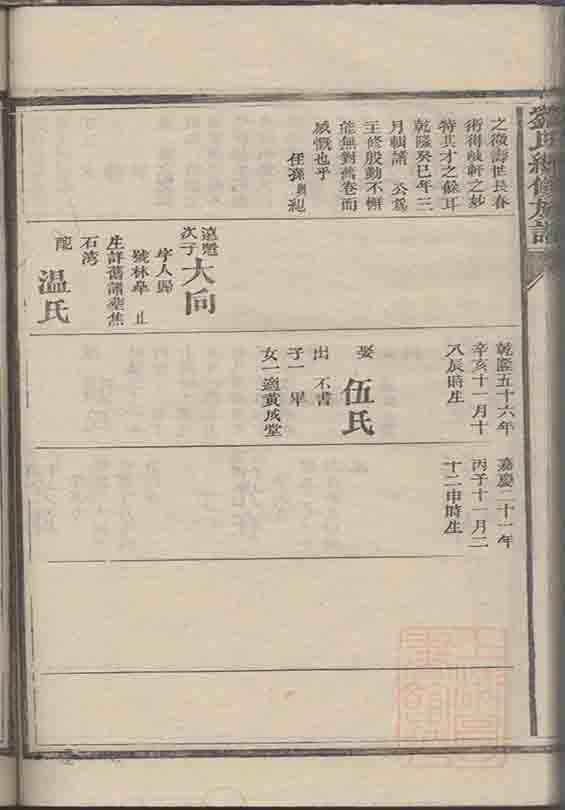 之徵壽世長春
術得岐軒之妙
特其才之餘耳
乾隆癸巳年三
月輯譜 公爲
主修殷勤不懈
能無對舊卷而
感慨也乎
次子
大向
字人歸
號林皐 止
生詳舊譜塟焦
石湾
配
温氏
乾隆五十六年
辛亥十一月十
八辰時生
娶
伍氏
出 不書
子一 畢
女一適黄成堂
嘉慶二十一年
丙子十一月二
十二申時生
氏續修族譜